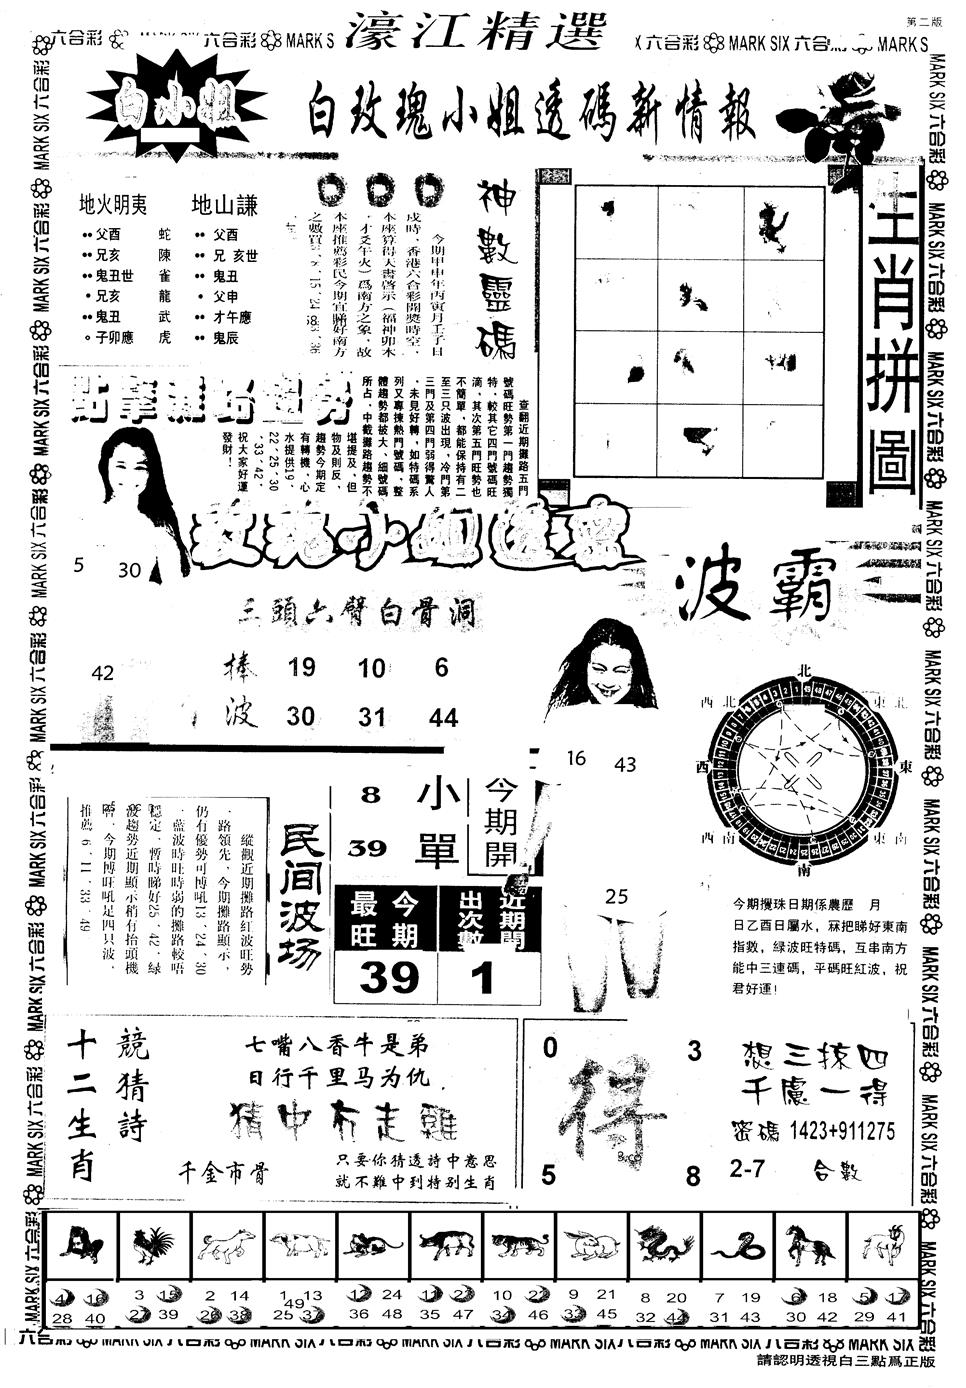 第二版
濠江精選
六合彩 MARK SIX 六合彩 MARK S
X 六合彩 MARK SIX 六合彩 MARK S
白小姐
白玫瑰小姐透碼新情報
地火明夷
父酉 蛇
兄亥 陳
鬼丑世 雀
兄亥 龍
鬼丑 武
子卯應 虎
地山謙
父酉
兄亥世
鬼丑
父申
才午應
鬼辰
神數靈碼
今期甲申年丙寅月壬子日
戌時，香港六合彩開獎時空，
本座算得天書啓示（福神卯木
，才爻午火）爲南方之象，故
本座推薦彩民今期宜睇好南方
生肖拼圖
查翻近期攤路五門
號碼旺勢第一門趨勢獨
特，較其它四門號碼旺
滴，其次第五門旺勢也
不簡單，都能保持有二
至三只波出現，冷門第
三門及第四門弱得驚人
，未見好轉，如特碼系
列又專揀熱門號碼，整
體趨勢都被大、細號碼
所占，中截攤路趨勢不
堪提及，但
物及則反，
趨勢今期定
有轉機，心
水提供19、
22、25、30
、33、42，
祝大家好運
發財！
玫瑰小姐透密
5 30
三頭六臂白骨洞
42
捧 19 10 6
波 30 31 44
波霸
16 43
25
北
西北 東北
西 東
西南 東南
南
今期攪珠日期係農歷 月
日乙酉日屬水，冧把睇好東南
指數，緑波旺特碼，互串南方
能中三連碼，平碼旺紅波，祝
君好運！
民间波场
縱觀近期攤路紅波旺勢
一路領先，今期攤路顯示，
仍有優勢可博吼13、24、30
，藍波時旺時弱的攤路較唔
穩定，暫時睇好25、42，緑
波趨勢近期顯示稍有抬頭機
會，今期博旺吼足四只波，
推薦6、11、33、49
8 小
39 單
今期開
最旺 今期
出次數 近期開
39 1
十二生肖
競猜詩
七嘴八香牛是弟
日行千里马为仇
猜中布走雞
千金市骨
只要你猜透詩中意思
就不難中到特别生肖
0 3
得
5 8
想三掠四
千慮一得
密碼 1423+911275
2-7 合數
3 15 2 14 1 13 12 24 11 23 10 22 9 21 8 20 7 19 6 18 5 17
28 40 27 39 26 38 25 49 37 36 48 35 47 34 46 33 45 32 44 31 43 30 42 29 41
六合彩 MARK SIX 六合彩 MARK SIX 六合彩 MARK SIX 六合彩 MARK SIX 六合彩 MARK SIX 六合彩
請認明透視白三點爲正版